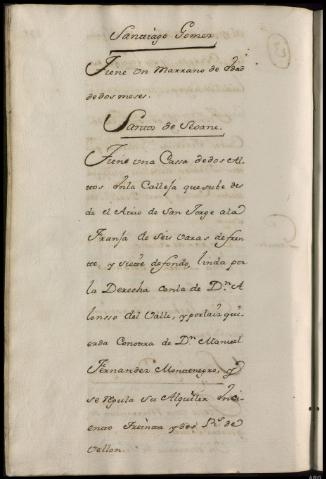 Santiago Gomez
Tiene Un Marrano de hedad
de dos meses.
Santos de Seoane.
Tiene una Cassa de dos Al-
tos en la Callefa que sube des
de el Arco de San Jorge a la
Franja de Seis varas de fren
te, y siette de fondo, linda por
la Derecha con la de Dn. A
lonsso del Valle, y por la iz qui
erda Con otra de Dn. Manuel
Fernandez Montenegro, y
se regula su Alquiler en ci-
ento Treinta y dos Rs. de
vellon.